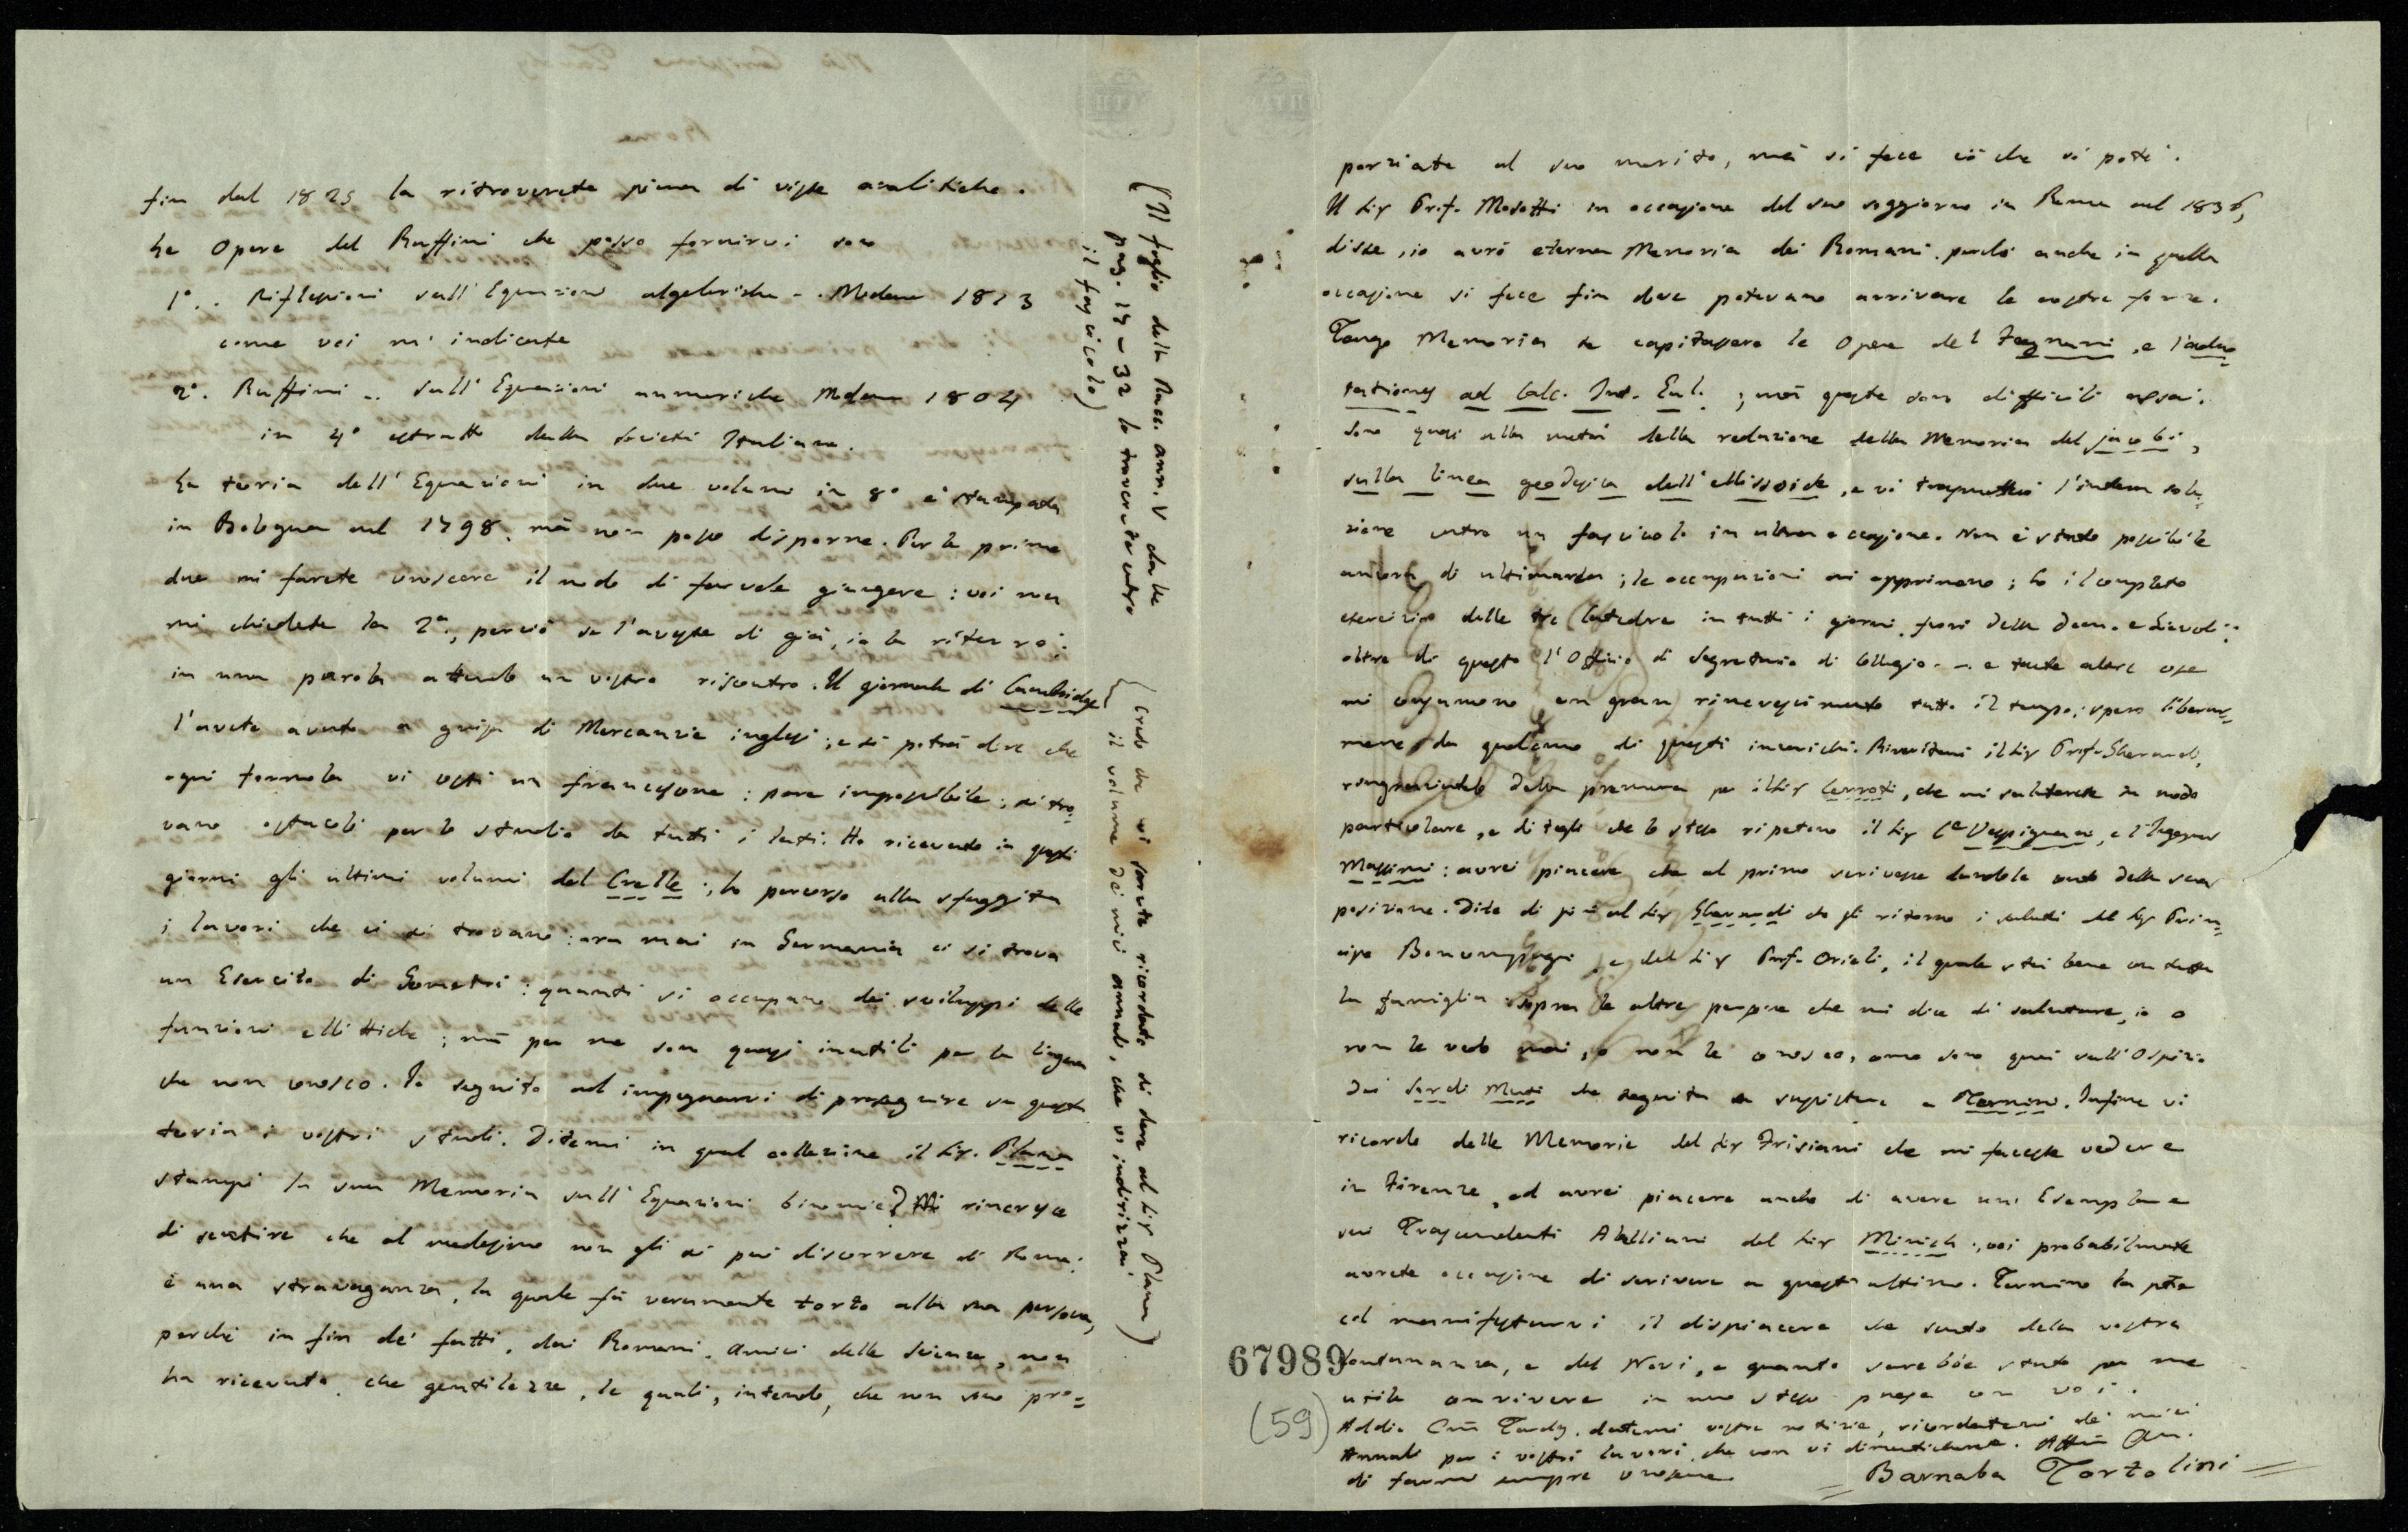 fin dal 1825 la ritroverete piena di viste analitiche.
Le Opere del Ruffini che posso fornirvi sono
1°.. Riflessioni sull'Equazioni algebriche .. Modena 1813
come voi m'indicate
2°. Ruffini .. Sull'Equazioni numeriche Modena 1804
in 4° estratto dalla Società Italiana.
La teoria dell'Equazioni in due volumi in 8° è stampata
in Bologna nel 1798, mà non posso disporne. Per le prime
due mi farete conoscere il modo di farvele giungere: voi non
mi chiedete la 2ª, perciò se l'aveste di già, io la riterrò:
in una parola attendo un vostro riscontro. Il giornale di Cambridge
l'avete avuto a guisa di Mercanzie inglesi; e si potrà dire che
ogni formola vi costi un francescone: pare impossibile; si tro=
vano ostacoli per lo studio da tutti i lati. Ho ricevuto in questi
giorni gli ultimi volumi del Crelle; ho percorso alla sfuggita
i lavori che ci si trovano: ora mai in Germania ci si trova
un Esercito di Geometri: quanti si occupano dei sviluppi delle
funzioni ellittiche; mà per me son quasi inutili per la lingua
che non conosco. Io seguito ad impegnarvi di proseguire su questa
teoria i vostri studi. Ditemi in qual collezione il Sig. Plana
stampi la sua Memoria sull'Equazioni binomie? Mi rincresce
di sentire che al medesimo non gli si può discorrere di Roma:
è una stravaganza, la quale fà veramente torto alla sua persona,
perché in fin de' fatti, dai Romani, amici delle Scienze, non
ha ricevuto che gentilezze, le quali, intendo, che non sono pro=
(Il foglio della Racc. ann. V dalle
pag. 17 - 32 lo troverete entro
il fascicolo)
(Credo che vi sarete ricordato di dare al Sig Plana
il volume de' miei annali, che vi indirizzai)
porzionate al suo merito, mà si fece ciò che si poté.
Il Sig Prof. Mosotti in occasione del suo soggiorno in Roma nel 1836,
disse, io avrò eterna Memoria dei Romani, perché anche in quella
occasione si fece fin dove potevano arrivare le nostre forze.
Tengo Memoria se capitassero le Opere del Fagnani, e l'adno=
tationes ad Calc. Int. Eul.; mà queste sono difficili assai.
Sono quasi alla metà della redazione della Memoria del Jacobi,
sulla linea geodesica dell'ellissoide, e vi trasmetterò l'intera solu=
zione entro un fascicolo in altra occasione. Non è stato possibile
ancora di ultimarla; le occupazioni mi opprimono; ho il completo
esercizio delle tre Cattedre in tutti i giorni, fuori della Dom. e Giovedì:
oltre di questo l'Officio di Segretario di Collegio .. e tante altre cose
mi consumano con gran rincrescimento tutto il tempo; spero liberar=
mene da qualcuno di questi incarichi. Riveritemi il Sig Prof. Gherardi,
ringraziatelo della premura per il Sig Cerroti, che mi saluterete in modo
particolare, e ditegli che lo stesso ripetono il Sig Ce Vespignani, e l'Ingegner
Massimi: avrei piacere che al primo scrivesse dandole conto della sua
posizione. Dite di più al Sig Gherardi che gli ritorno i saluti del Sig Prin=
cipe Boncompagni, e del Sig Prof. Orioli, il quale stà bene con tutta
la famiglia; sopra le altre persone che mi dice di salutare, io o
non le vedo mai, o non le conosco, come sono quei dell'Ospizio
dei Sordi Muti che seguita a sussistere a Termini. Infine vi
ricordo delle Memorie del Sig Frisiani che mi faceste vedere
in Firenze, ed avrei piacere anche di avere un Esemplare
sui Trascendenti Abelliani del Sig Minich; voi probabilmente
avrete occasione di scrivere a quest'ultimo. Termino la pte
col manifestarvi il dispiacere che sento della vostra
lontananza, e del Novi, e quanto sarebbe stato per me
utile convivere in uno stesso paese con voi.
Addio Cmo Tardy, datemi vostre notizie, ricordatevi de' miei
Annali per i vostri lavori, che non vi dimenticherete. Affmo Am.
di farmi sempre
Barnaba Tortolini
67989
(59)